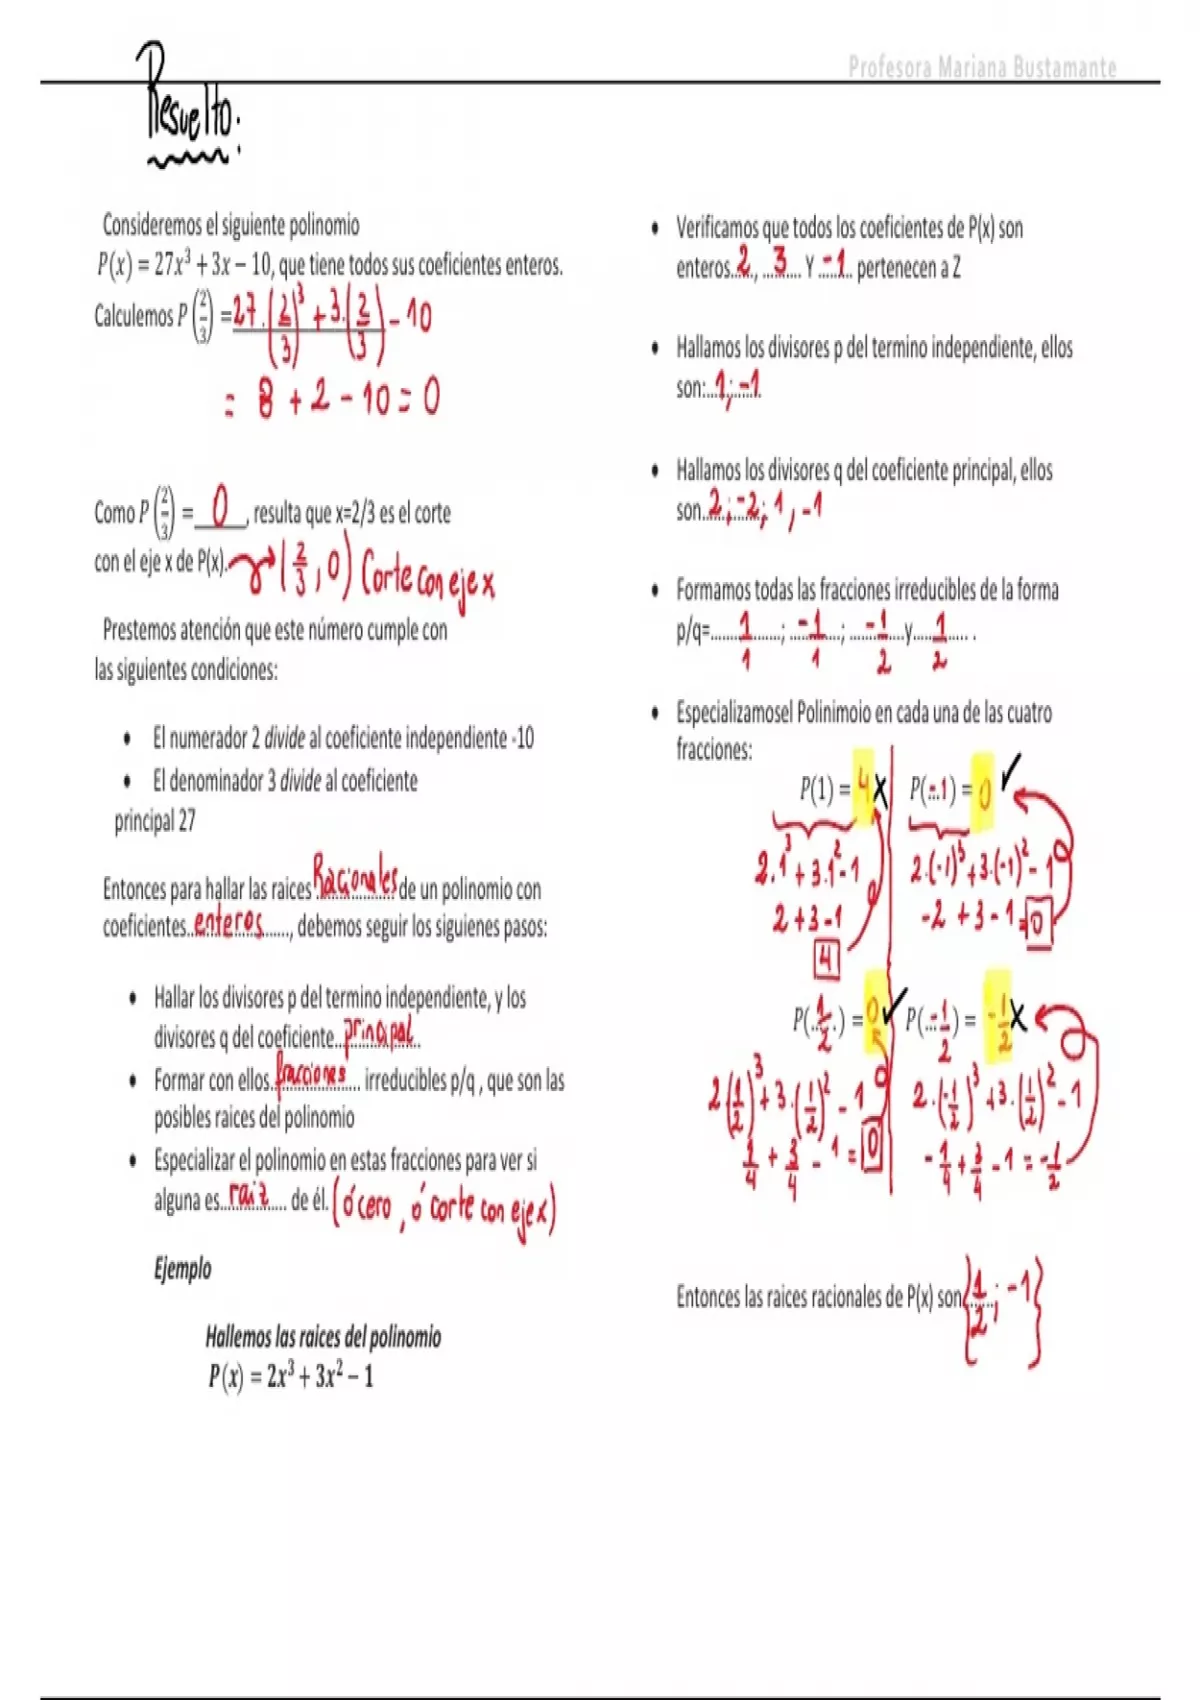 Profesora Mariana Bustamante
Resuelto:
Consideremos el siguiente polinomio
P(x) = 27x³ + 3x − 10, que tiene todos sus coeficientes enteros.
Calculemos P(2/3) = 27.(2/3)³ + 3.(2/3) − 10
= 8 + 2 − 10 = 0
Como P(2/3) = 0, resulta que x=2/3 es el corte
con el eje x de P(x). → (2/3, 0) Corte con eje x
Prestemos atención que este número cumple con
las siguientes condiciones:
• El numerador 2 divide al coeficiente independiente -10
• El denominador 3 divide al coeficiente
principal 27
Entonces para hallar las raices Racionales de un polinomio con
coeficientes enteros, debemos seguir los siguienes pasos:
• Hallar los divisores p del termino independiente, y los
divisores q del coeficiente principal
• Formar con ellos fracciones irreducibles p/q , que son las
posibles raices del polinomio
• Especializar el polinomio en estas fracciones para ver si
alguna es raiz de él. (ó cero, ó corte con eje x)
Ejemplo
Hallemos las raices del polinomio
P(x) = 2x³ + 3x² − 1
• Verificamos que todos los coeficientes de P(x) son
enteros 2, 3 Y -1 pertenecen a Z
• Hallamos los divisores p del termino independiente, ellos
son: 1; -1
• Hallamos los divisores q del coeficiente principal, ellos
son 2; -2; 1, -1
• Formamos todas las fracciones irreducibles de la forma
p/q= 1/1; -1/1; -1/2 y 1/2 .
• Especializamosel Polinimoio en cada una de las cuatro
fracciones:
P(1) = 4 x P(-1) = 0 ✓
2.1³ + 3.1² - 1 2.(-1)³ + 3.(-1)² - 1
2 + 3 - 1 -2 + 3 - 1 = 0
4
P(1/2) = 0 ✓ P(-1/2) = -1/2 x
2(1/2)³ + 3.(1/2)² - 1 2.(-1/2)³ + 3.(1/2)² - 1
1/4 + 3/4 - 1 = 0 -1/4 + 3/4 - 1 = -1/2
Entonces las raices racionales de P(x) son {1/2; -1}